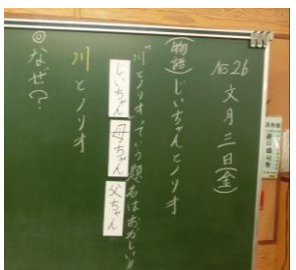 No.26 文月三日(金)
(物語)じいちゃんとノリオ
「川とノリオ」っていう題名はおかしい!!
じいちゃん 母ちゃん 父ちゃん
川とノリオ
◎なぜ?